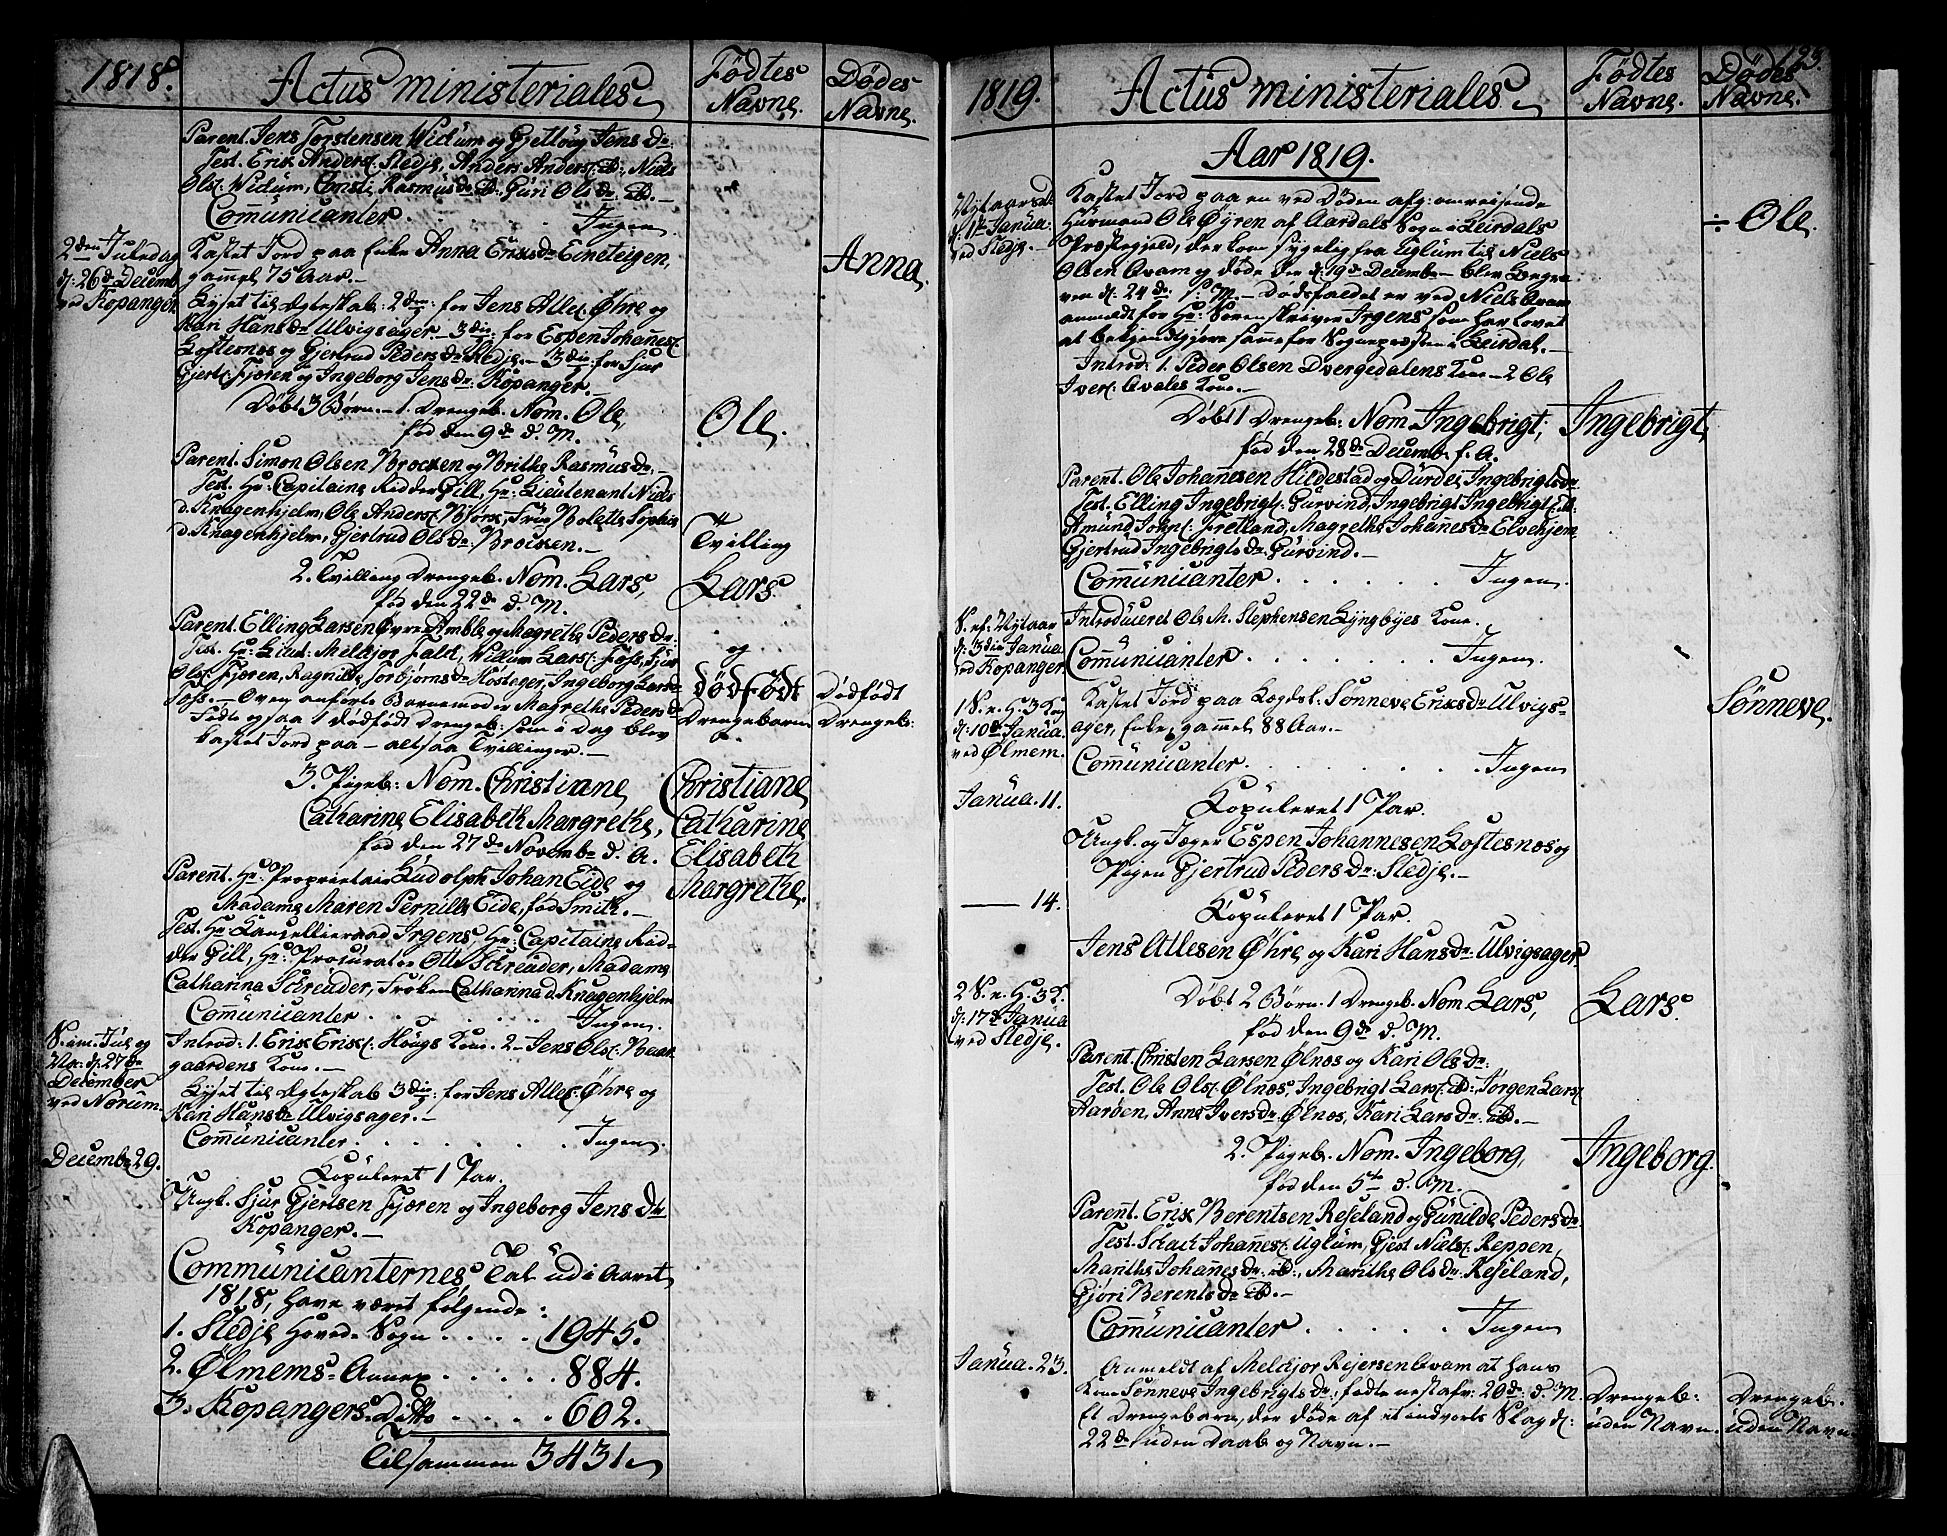 1818.
Actus ministeriales
Födtes
Navne.
Dödes
Navne.
Parent. Jens Torstensen Widum og Gjertlöug Jens Dr
Test. Erik Anders. Stedje, Anders Anders. ib:, Niels
Ols. Widum, Christi Rasmus Dr ib:, Guri Ols Dr ib.
Communicanter . . . Ingen.
2den Juledag
d: 26de Decemb
ved Kopanger
Kastet Jord paa Enke Anna Eriks Dr Eineteigen,
gammel 75 Aar.
Anna
Lyset til Ægteskab: 2den for Jens Atles. Öhre og
Kari Hans Dr Ulvigsager. 3die for Espen Johannes.
Loftesnæs og Gjertrud Peders Dr Stedje. 3die for Siur
Gjerts. Fjæren og Ingeborg Jens Dr Kopanger.
Döbt 3 Börn. 1. Drengeb. Nom. Ole,
föd den 9de d. M.
Ole.
Parent. Simon Olsen Brocken og Brithe Rasmus Dr
Test. Hr: Capitaine Ridder Gill, Hr: Lieutenant Niels
d. Knagenhjelm, Ole Anders. Björk, Frue Bolette Sophie
d. Knagenhjelm, Gjertrud Ols Dr Brocken.
2. Tvilling Drengeb. Nom. Lars,
föd den 22de d. M.
Tvilling
Lars
Parent. Elling Larsen Övre Amble og Magrethe Peders Dr
Test. Hr: Lieut: Melkior Falck, Willum Lars. Foss, Siur
Ols. Fjæren, Ragnilde Torbjörns Dr Hostager, Ingeborg Lars Dr
Foss. Oven anförte Barnemoder Magrethe Peders Dr
födte ogsaa 1 dödfödt Drengeb: som i Dag blev
kastet Jord paa altsaa Tvillinger.
og
dödfödt
Drengebarn
Dödfödt
Drengeb:
3. Pigeb: Nom. Christiane
Catharine Elisabeth Margrethe,
föd den 27de Novemb. d. A.
Christiane
Catharine
Elisabeth
Margrethe.
Parent. Hr: Proprietair Ludolph Johan Eide og
Madame Maren Pernille Eide, föd Smith.
Test. Hr Kancellieraad Irgens, Hr: Capitaine Rid-
der Gill, Hr: Procurator Otto Schreuder, Madame
Catharina Schreuder, Fröken Catharina d. Knagenhjelm
Communicanter . . . Ingen.
S. im. Jul og
Nyt: d: 27de
December
ved Norum.
Introd: 1. Erik Eriks. Hougs Kone. 2 Jens Ols.
gaardens Kone.
Lyset til Ægteskab 3die for Jens Atles. Öhre og
Kari Hans Dr Ulvigsager.
Communicanter . . . Ingen.
Decemb. 29.
Kopuleret 1 Par.
Ungk. Siur Gjertsen Fjæren og Ingeborg Jens Dr
Kopanger.
Communicanternes Tal udi Aaret
1818, have været fölgende:
1. Stedje Hoved-Sogn . . . 1945.
2. Ölmems-Annex . . . 884.
3. Kopangers Ditto . . . 602.
Tilsammen 3431
123.
1819.
Actus ministeriales
Födtes
Navne.
Dödes
Navne.
Aar 1819.
Nytaarsd.
d: 1te Janua:
ved Stedje.
Kastet Jord paa en ved Döden afg: omreisende
Huusmand Ole Öyren af Aardals Sogn i Leirdals
Præstegjeld, der kom sygelig fra Uglum til Niels
Olsen Qvam og döde der d: 19de Decemb. blev begra-
ven d: 24de s: M. Dödsfaldet er ved Niels Qvam
anmeldt for Hr: Sorenskriver Irgens som har lovet
at bekjendtgjöre samme for Sognepræsten i Leirdal.
÷ Ole.
Introd: 1. Peder Olsen Dvergedalens Kone 2 Ole
Ivers. Qvales Kone.
Döbt 1 Drengeb: Nom Ingebrigt,
föd den 28de Decemb. f. A.
Ingebrigt
Parent. Ole Johannesen Hildestad og Durdei Ingebrigts Dr
Test. Elling Ingebrigts. Gurvind, Ingebrigt Ingebrigts. ib:
Amund Johns. Fretland, Magrethe Johannes Dr Elvehjem
Gjertrud Ingebrigts Dr Gurvind.
Communicanter . . . Ingen.
S. ef. Nytaar
d: 3die Janua
ved Kopanger
Introduceret Ole M. Stephensen Lyngbyes Kone.
Communicanter . . . Ingen.
1 S. e. H. 3 Kong
d: 10de Janua
ved Ölmem.
Kastet Jord paa Lægdsl. Sönneve Eriks Dr Ulvigs-
ager, Enke, gammel 88 Aar.
Sönneve.
Communicanter . . . Ingen
Janua. 11.
Kopuleret 1 Par.
Ungk. og Jæger Espen Johannesen Loftesnæs og
Pigen Gjertrud Peders Dr Stedje.
— 14.
Kopuleret 1 Par.
Jens Atlesen Öhre og Kari Hans Dr Ulvigsager.
2 S. e. H. 3 K.
d: 17de Janua
ved Stedje.
Döbt 2 Börn. 1 Drengeb. Nom Lars,
föd den 9de d. M.
Lars.
Parent. Christen Larsen Ölnæs og Kari Ols Dr
Test. Ole Ols. Ölnæs, Ingebrigt Lars. ib: Jörgen Lars.
Aaröen, Anne Ivers Dr Ölnæs, Kari Lars Dr ib.
2. Pigeb. Nom. Ingeborg,
föd den 5te d. M.
Ingeborg.
Parent. Erik Berentsen Reseland og Gunilde Peders Dr
Test. Schack Johannes. Uglum, Gjest Niels. Reppen,
Marithe Johannes Dr ib:, Marithe Ols Dr Reseland,
Gjöri Berents Dr ib.
Communicanter . . . Ingen
Janua. 23.
Anmeldt af Melkjor Rejersen Qvam at hans
Kone Sönneve Ingebrigts Dr: födte nestafv: 20de d. M.
Et Drengebarn, der döde af et indvorts Slag d:
22de uden Daab og Navn.
Drengeb:
uden Navn.
Drengeb.
uden Navn